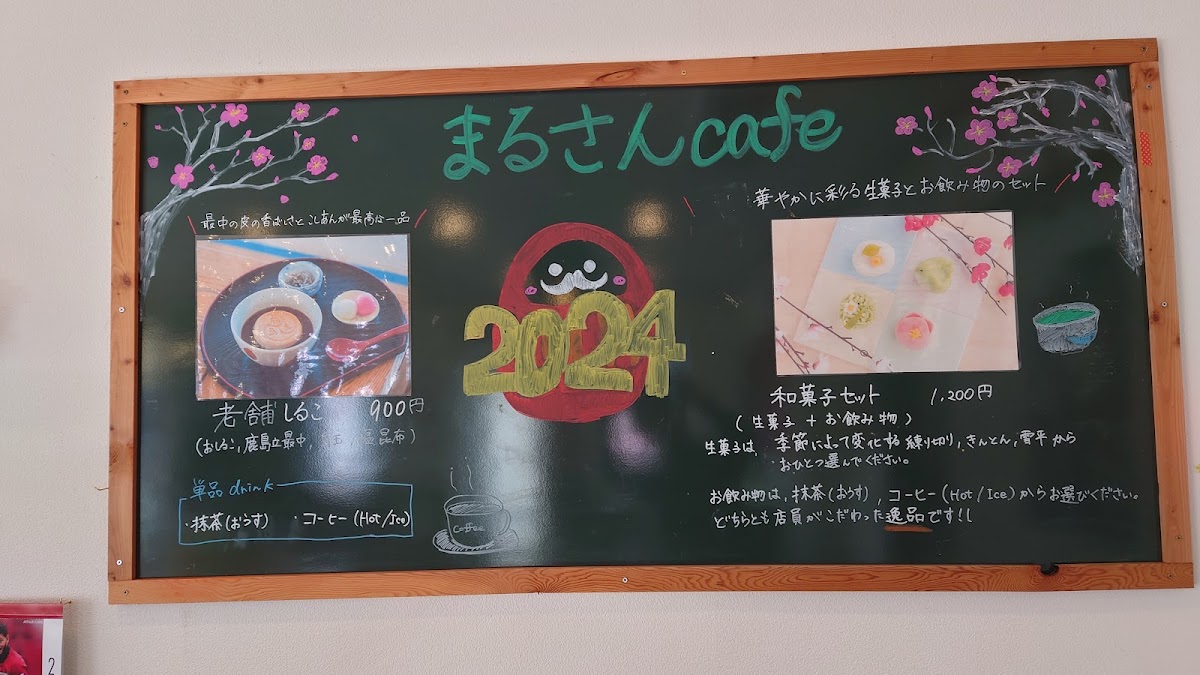 まるさんcafe
最中の皮の香ばしさとこしあんが最高な一品
老舗しるこ 900円
(おしるこ,鹿島立最中, 玉 昆布)
単品 drink
・抹茶(おうす) ・コーヒー(Hot/Ice)
2024
coffee
華やかに彩る生菓子とお飲み物のセット
和菓子セット 1,200円
(生菓子+お飲み物)
生菓子は、季節によって変化する練り切り,きんとん,雪平から
おひとつ選んでください。
お飲み物は,抹茶(おうす),コーヒー(Hot/Ice)からお選びください。
どちらとも店員がこだわった逸品です!!
2